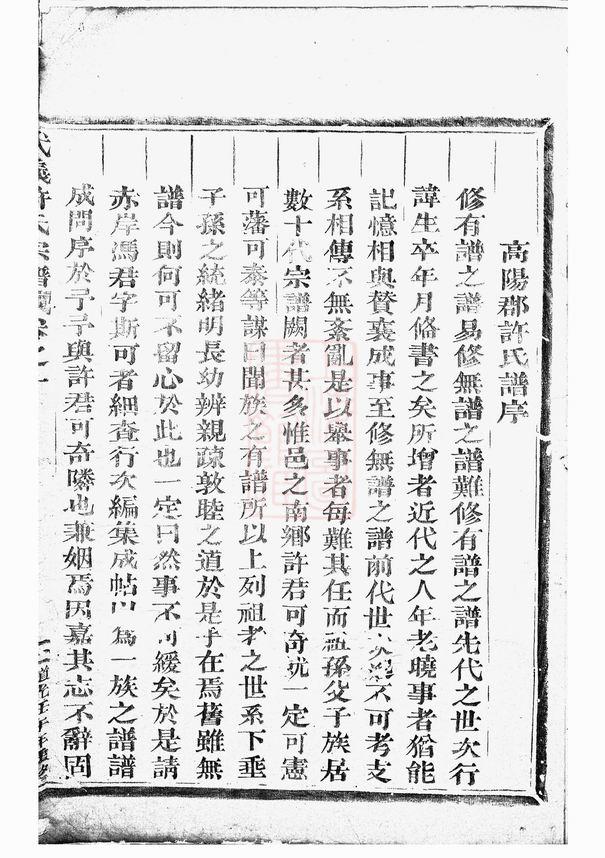 高陽郡許氏譜序
修有譜之譜易修無譜之譜難修有譜之譜先代之世次行
諱生卒年月俻書之矣所增者近代之人年老曉事者猶能
記憶相與贊襄成事至修無譜之譜前代世次不可考支
系相傳不無紊亂是以舉事者每難其任而祖孫父子族居
數十代宗譜闕者甚多惟邑之南鄉許君可奇一定可憲
可藩可泰等謀曰聞族之有譜所以上列祖考之世系下垂
子孫之統緒明長幼辨親疏敦睦之道於是乎在焉舊雖無
譜今則何可不留心於此也一定曰然事不可緩矣於是請
赤岸馮君字斯可者細查行次編集成帖以爲一族之譜譜
成問序於予予與許君可奇隣也兼姻焉因嘉其志不辭固
武義許氏宗譜卷之一
道光壬午年重修